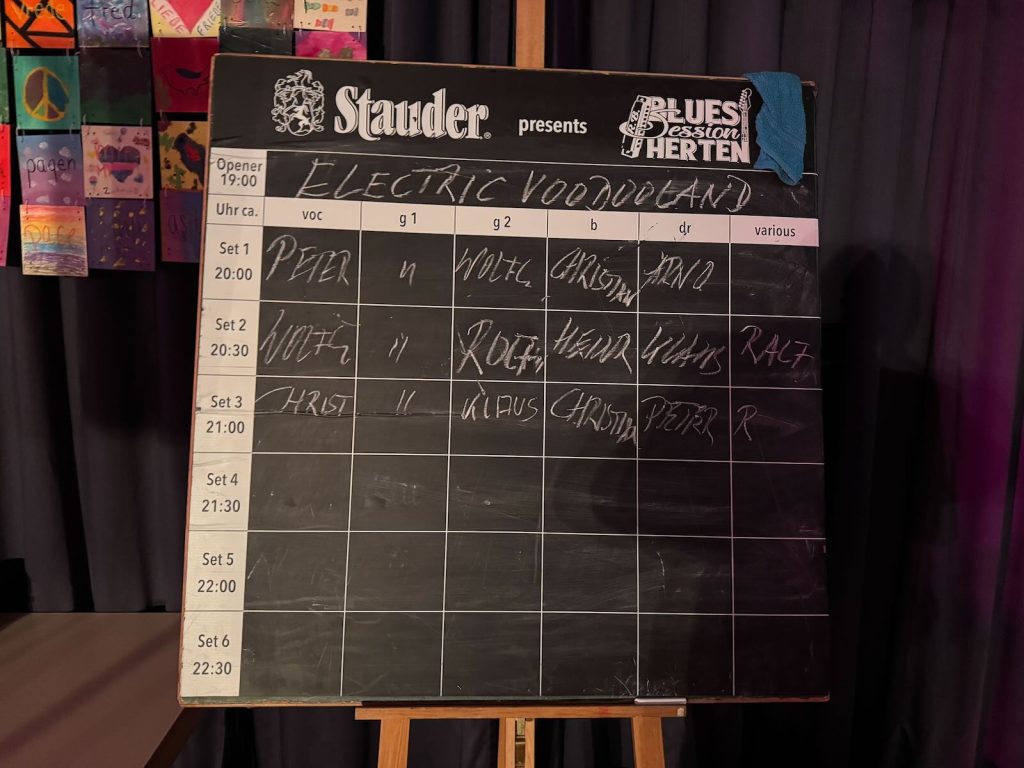 Vrede
Fred
LIEBE
FRIEDE
pagen
Stauder® presents BLUES Session HERTEN
Opener 19:00 ELECTRIC VOODOOLAND
Uhr ca. voc g 1 g 2 b dr various
Set 1 20:00 PETER " WOLFG CHRISTIAN ARNO
Set 2 20:30 WOLFG " ROLF HEINR KLAUS RALF
Set 3 21:00 CHRIST " KLAUS CHRISTIAN PETER R
Set 4 21:30
Set 5 22:00
Set 6 22:30